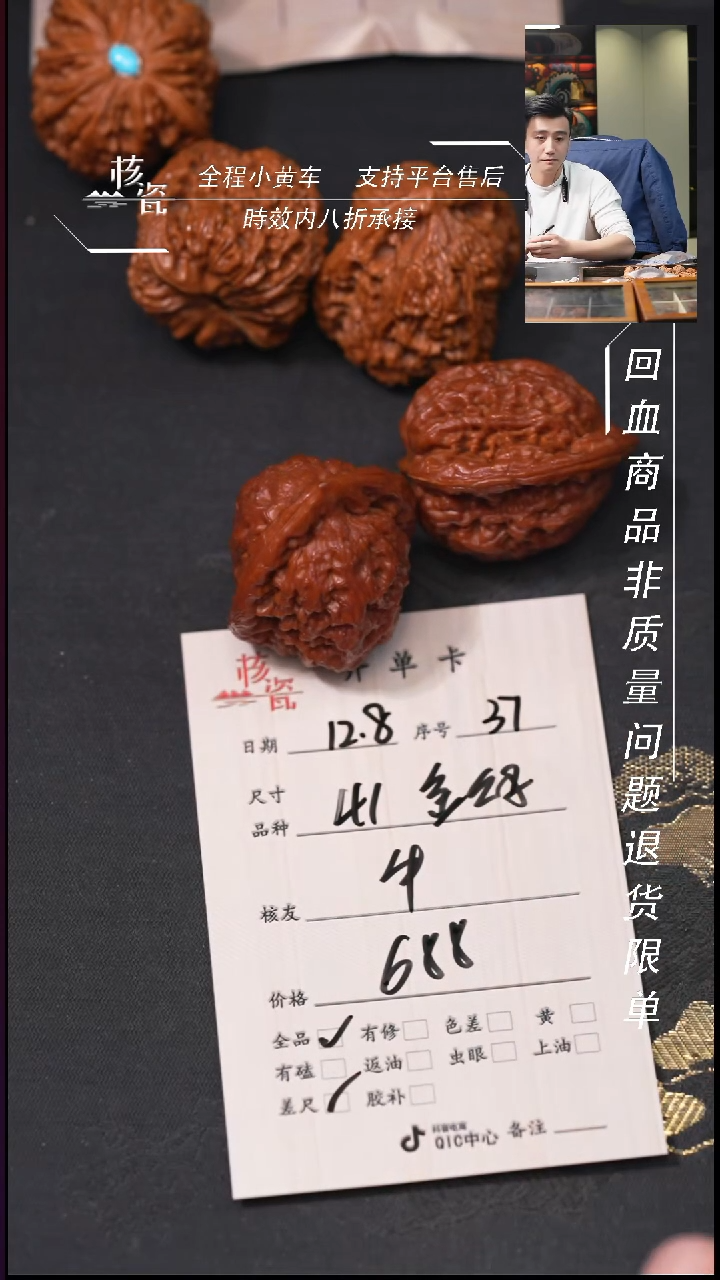 核瓷
全程小黄车 支持平台售后
時效内八折承接
回血商品非质量问题退货限单
核瓷
单卡
日期 12.8 序号 37
尺寸
品种 41
核友
价格 688
全品 有修 色差 黄
有磕 返油 虫眼 上油
差尺 胶补
QIC中心 备注